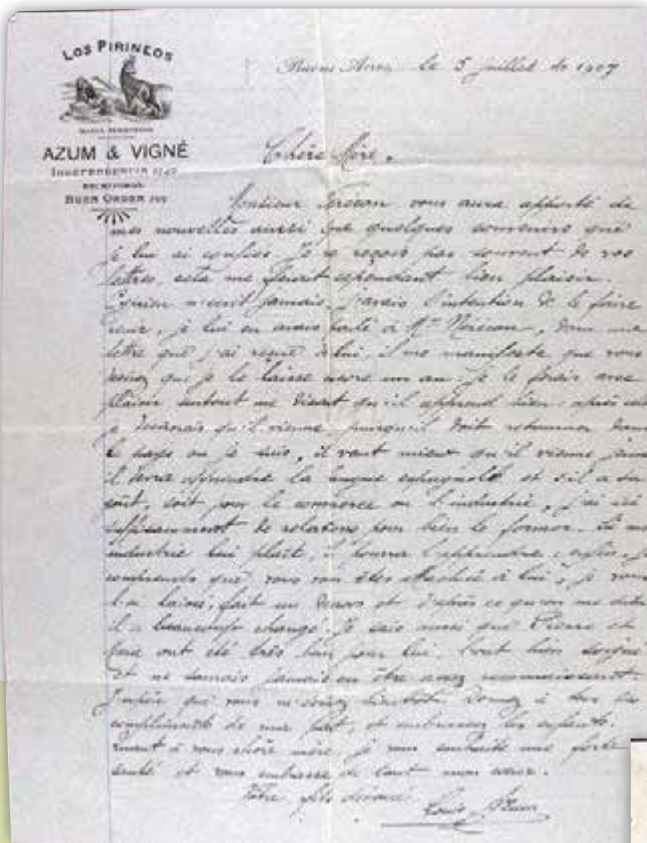 LOS PIRINEOS
AZUM & VIGNÉ
INDEPENDENCIA
BUEN ORDEN
Buenos Aires le 5 juillet de 1907
Chère Mère.
Monsieur vous aura apporté de
mes nouvelles ainsi que quelques souvenirs que
je lui ai confiés. Je ne reçois pas souvent de vos
lettres, cela me ferait cependant bien plaisir.
n'écrit jamais, j'avais l'intention de le faire
venir, je lui en avais parlé à Mr dans une
lettre que j'ai reçue de lui, il me manifeste que vous
que je le laisse encore un an. Je le ferais avec
plaisir surtout me disant qu'il apprend bien, après cela
je qu'il vienne, puisqu'il doit retourner dans
le pays ou je suis, il vaut mieux qu'il vienne jeune
il devra apprendre la langue espagnole et s'il a du
goût, soit pour le commerce ou l'industrie, j'ai ici
suffisamment de relations pour bien le former. Si mon
industrie lui plaît, il pourra l'apprendre enfin, je
comprends que vous vous êtes attaché à lui, je vous
l'ai laissé, fait un et d'après ce qu'on me dit
il a beaucoup changé. Je sais aussi que Pierre et
ont été très bon pour lui. bien soigné
et ne saurais jamais en être assez reconnaissant.
J'espère que vous bientôt. Donnez à tous les
compliments de ma part, et embrassez les enfants.
Quant à vous chère mère, je vous souhaite une forte
santé et vous embrasse de tout mon cœur.
Votre fils dévoué
Louis Azum